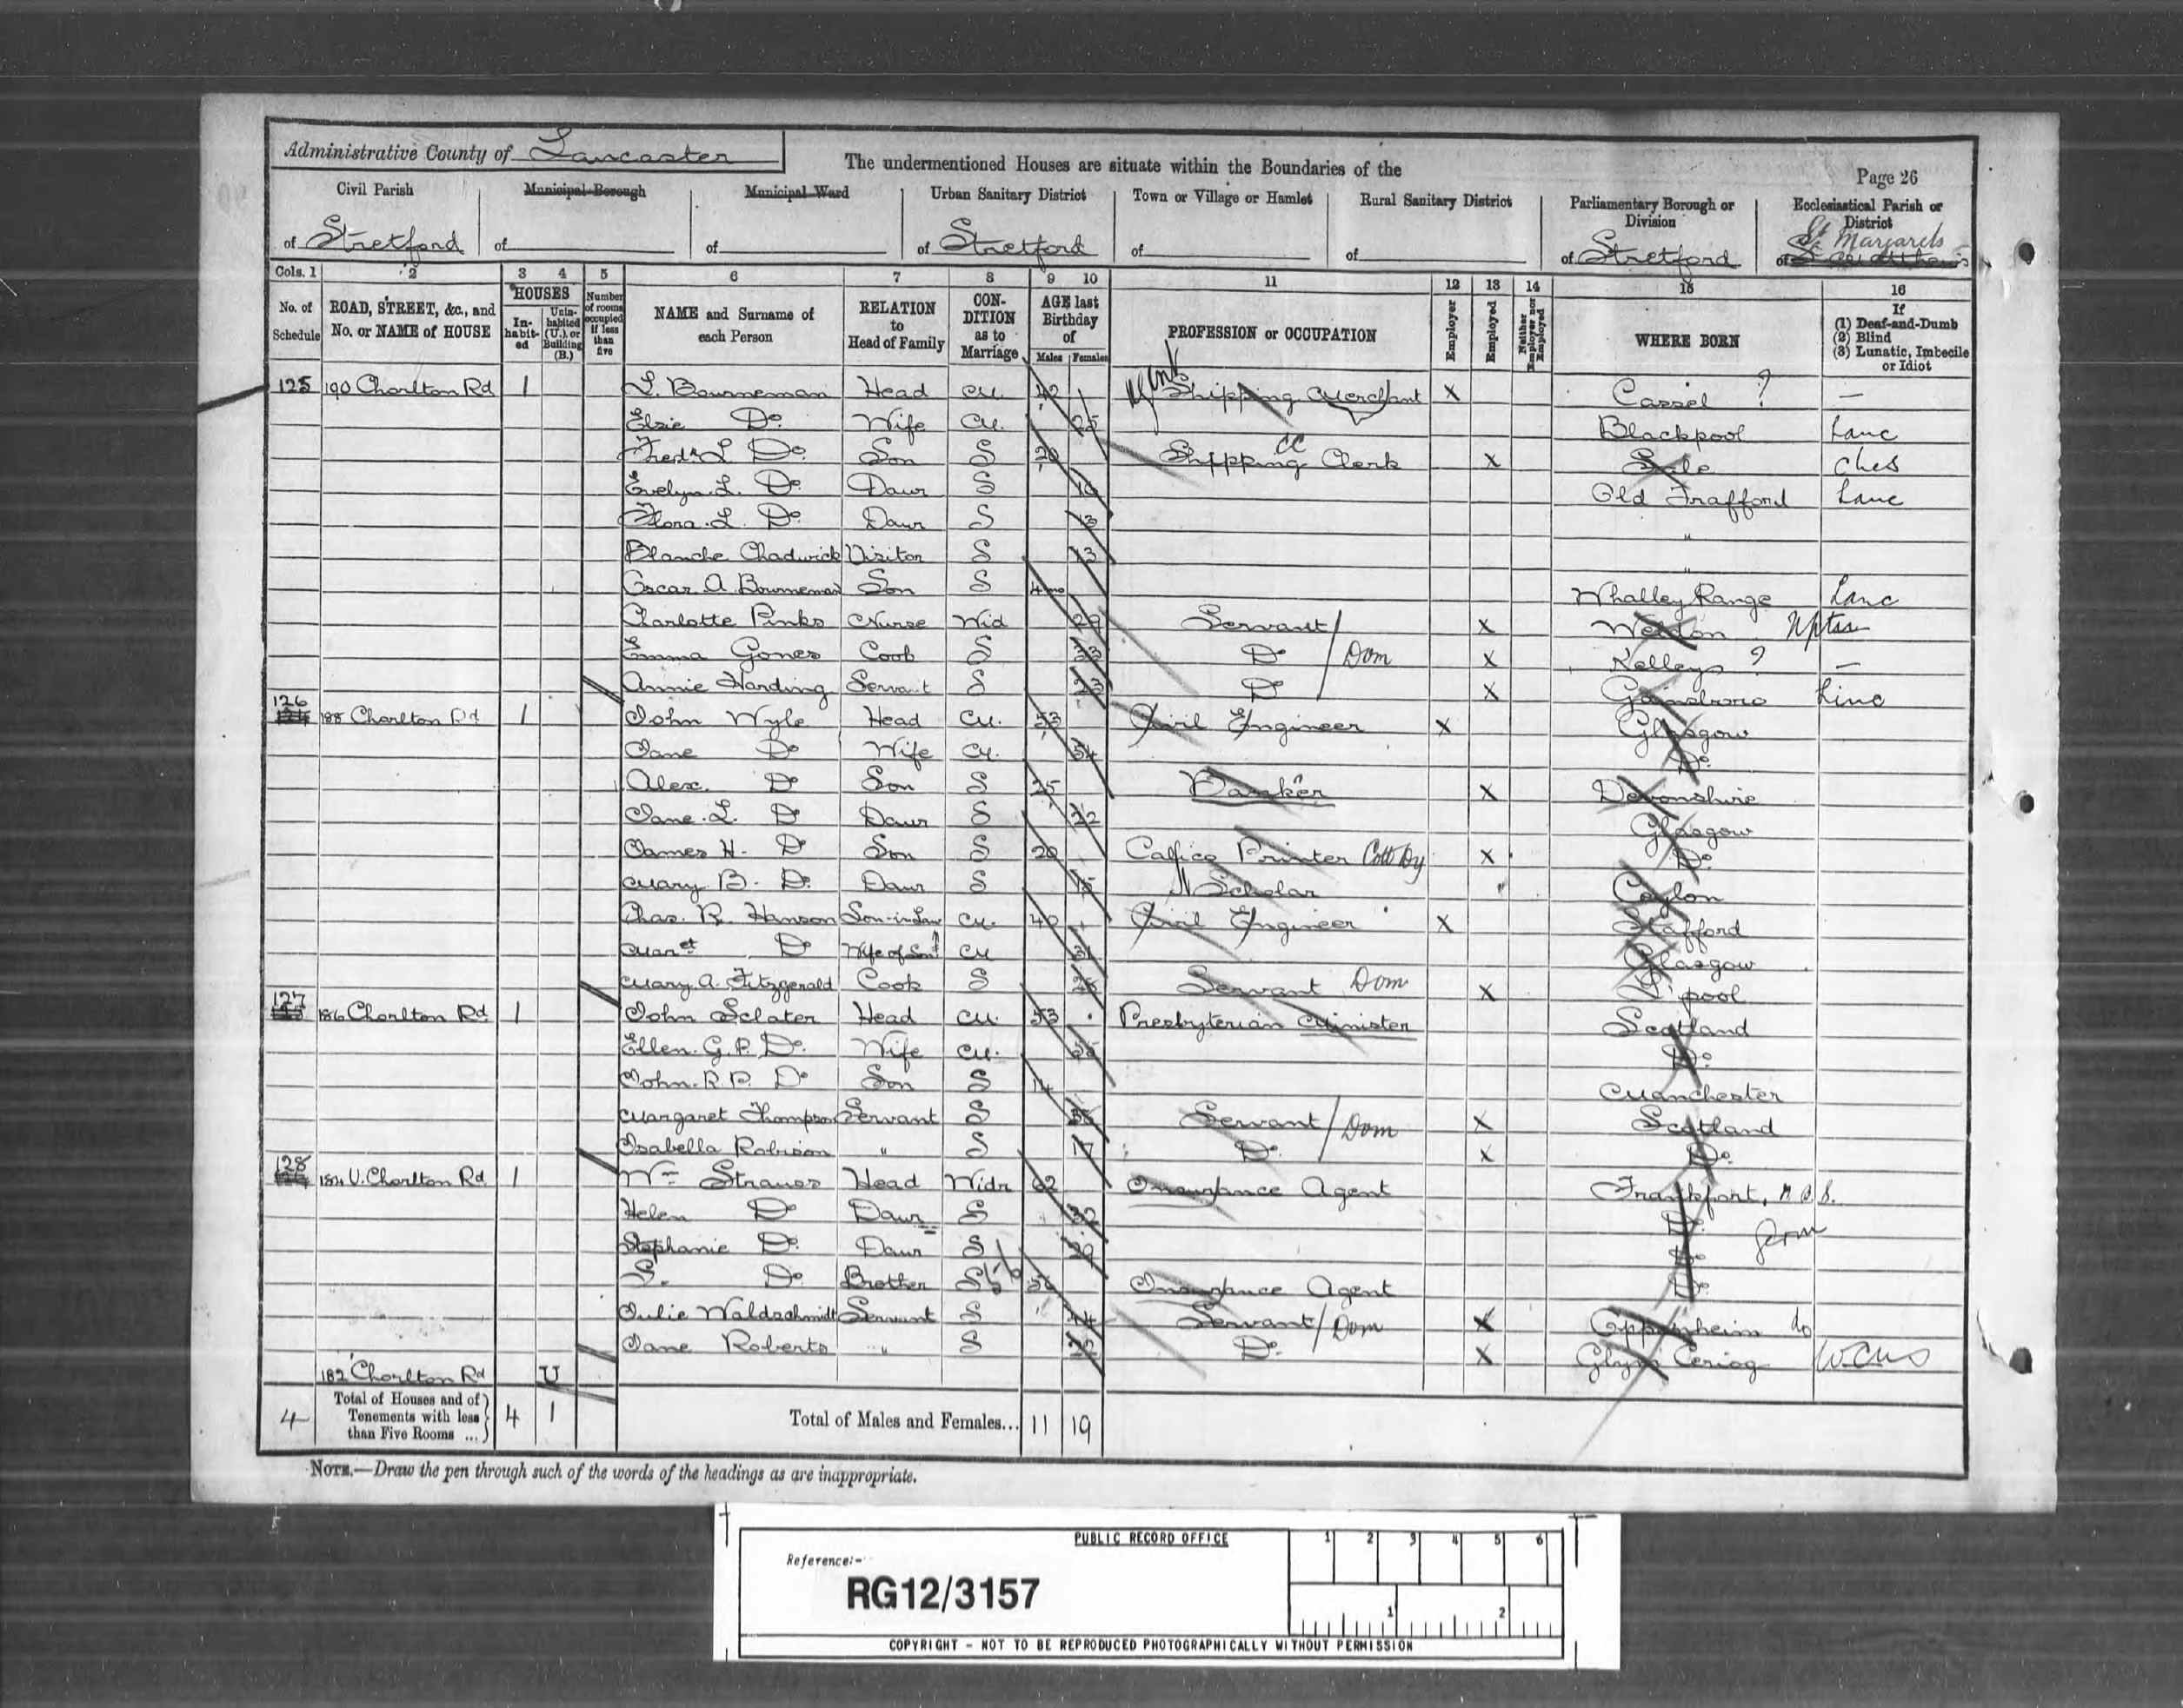 Administrative County of Lancaster
The undermentioned Houses are situate within the Boundaries of the
Page 26
Civil Parish Municipal Borough Municipal Ward Urban Sanitary District Town or Village or Hamlet Rural Sanitary District Parliamentary Borough or Division Ecclesiastical Parish or District
of Stretford of of of Stretford of of of Stretford of St Margarets
Cols. 1 2 3 4 5 6 7 8 9 10 11 12 13 14 15 16
No. of Schedule ROAD, STREET, &c., and No. or NAME of HOUSE HOUSES Inhabited Uninhabited (U.), or Building (B.) Number of rooms occupied if less than five NAME and Surname of each Person RELATION to Head of Family CONDITION as to Marriage AGE last Birthday of Males Females PROFESSION or OCCUPATION Employer Employed Neither Employer nor Employed WHERE BORN If (1) Deaf-and-Dumb (2) Blind (3) Lunatic, Imbecile or Idiot
125 190 Chorlton Rd 1 L. Bourneman Head M. 42 Shipping Merchant X Cassel ? —
Elsie Do Wife M. 25 Blackpool Lanc
Fredk L Do Son S 20 Shipping Clerk CC X Sale Ches
Evelyn L. Do Daur S Old Trafford Lanc
Flora L. Do Daur S 13 "
Blanche Chadwick Visitor S 13 "
Oscar A Bourneman Son S 4 mo Whalley Range Lanc
Charlotte Pinks Nurse Wid 29 Servant X Nptn
Emma Gones Cook S 33 Do Dom X Kelleys ? —
Annie Harding Servant S 23 Do X Gainsboro Linc
126 188 Chorlton Rd 1 John Wyle Head M. 53 Civil Engineer X Glasgow
Jane Do Wife M. 54 Do
Alex. Do Son S 25 Banker X Devonshire
Jane L. Do Daur S 22 Glasgow
James H. Do Son S 20 Callico Printer Cott Dy X Do
Mary B. Do Daur S 15 Scholar " Ceylon
Chas. R. Hanson Son-in-Law M. 40 Civil Engineer X Stafford
Mart Do Wife of Son M 31 Glasgow
Mary A. Fitzgerald Cook S 26 Servant Dom X L'pool
127 186 Chorlton Rd 1 John Sclater Head M. 53 Presbyterian Minister Scotland
Ellen G. P. Do Wife M. Do
John R P. Do Son S 14 Manchester
Margaret Thompson Servant S Servant Dom X Scotland
Isabella Robison " S 17 Do X Do
128 184 U. Chorlton Rd 1 Wm Strauss Head Widr 62 Insurance Agent Frankfort, N.B.S.
Helen Do Daur S 32 Do Germ
Stephanie Do Daur S 29 Do
S. Do Brother S Insurance Agent Do
Julie Waldschmidt Servant S 44 Servant Dom X Oppenheim do
Jane Roberts " S 22 Do X Glyn Ceriog
182 Chorlton Rd U
4 Total of Houses and of Tenements with less than Five Rooms ... 4 1 Total of Males and Females... 11 19
NOTE.—Draw the pen through such of the words of the headings as are inappropriate.
PUBLIC RECORD OFFICE
1 2 3 4 5 6
Reference:-
RG12/3157
1 2
COPYRIGHT - NOT TO BE REPRODUCED PHOTOGRAPHICALLY WITHOUT PERMISSION